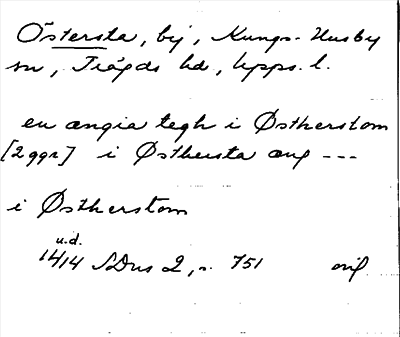 Östersta, by, Kungs-Husby
sn, Trögds hd, Upps. l.
en ængia tegh i Østherstom
[2 ggr] i Østhersta æng ---
i Østherstom
u.d.
1414 SDns 2, s. 751 orig.